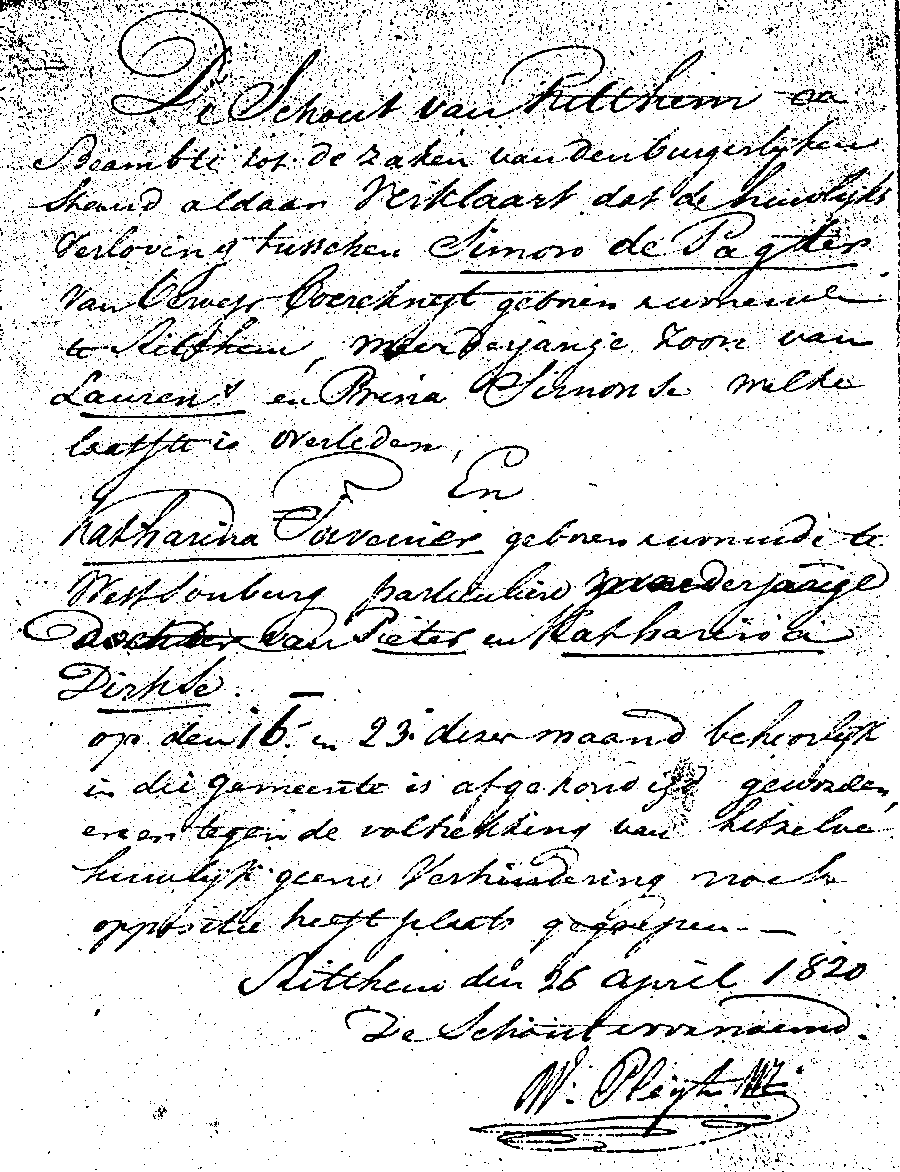 De Schout van Ritthem en
Beambte tot de zaken van den burgerlyken
Stand aldaar Verklaart dat de huwlijks
Verloving tusschen Simon de Pagter
Van beroep boereknegt geboren en wonende
te Ritthem, meerderjarige zoon van
Laurens en Prina Simonse welke
laatste is overleden,
En
Katharina Tavenier geboren en wonende te
West Souburg particuliere meerderjarige
dochter van Pieter en Katharina
Dirkse.
op den 16 en 23 dezer maand behoorlyk
in die gemeente is afgekondigd geworden,
en er tegen de voltrekking van hetzelve
huwlyk geene Verhindering noch
oppositie heeft plaats gegrepen.—
Ritthem den 26 april 1820
De Schout voornoemd.
W. Pleyt Wz.